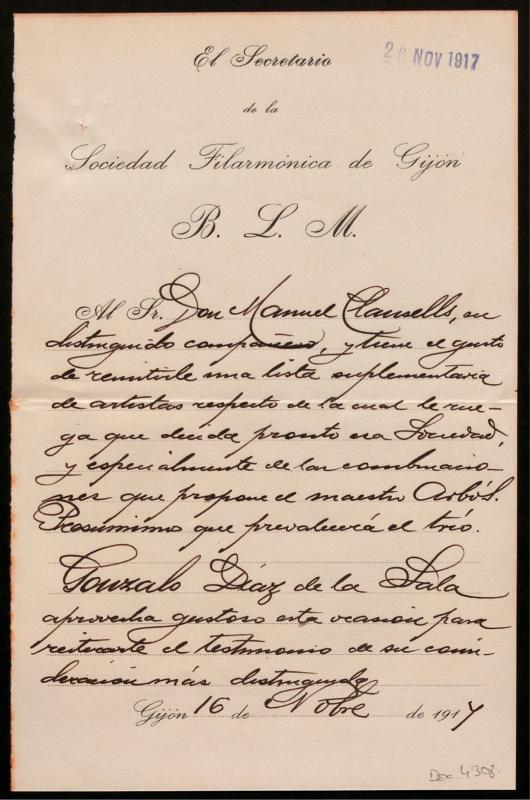 El Secretario
26 NOV 1917
de la
Sociedad Filarmónica de Gijón
B. L. M.
Al Sr. Don Manuel Clausells, su
distinguido compañero, y tiene el gusto
de remitirle una lista suplementaria
de artistas respecto de la cual le rue-
ga que decida pronto esa Sociedad,
y especialmente de las combinacio-
nes que propone el maestro Arbós.
Presumimos que prevalecerá el trío.
Gonzalo Díaz de la Sala
aprovecha gustoso esta ocasión para
reiterarle el testimonio de su consi-
deración más distinguida
Gijón 16 de Nobre de 1917
Doc. 4308.